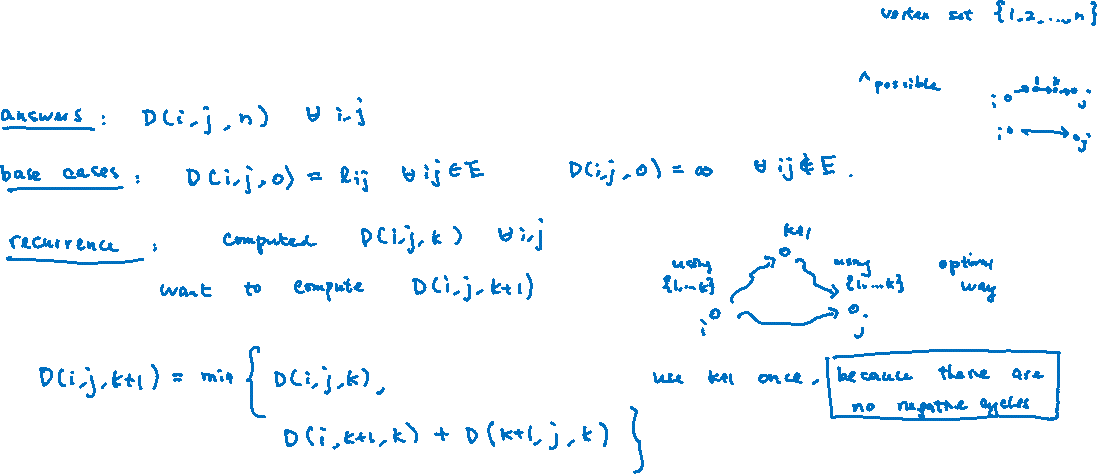 vertex set {1,2,...,n}
^ possible
i j
i j
answers : D(i,j,n) ∀ i,j
base cases : D(i,j,0) = lij ∀ ij ∈ E D(i,j,0) = ∞ ∀ ij ∉ E.
recurrence : computed D(i,j,k) ∀ i,j
want to compute D(i,j,k+1)
k+1
using using optimal
{1,...k} {1,...k} way
i j
D(i,j,k+1) = min { D(i,j,k),
D(i,k+1,k) + D(k+1,j,k) }
use k+1 once, because there are
no negative cycles